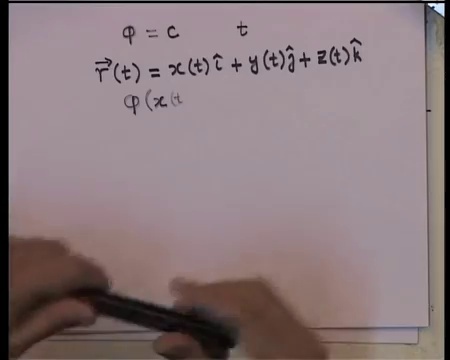 φ = c t
r⃗(t) = x(t)î + y(t)ĵ + z(t)k̂
φ(x(t